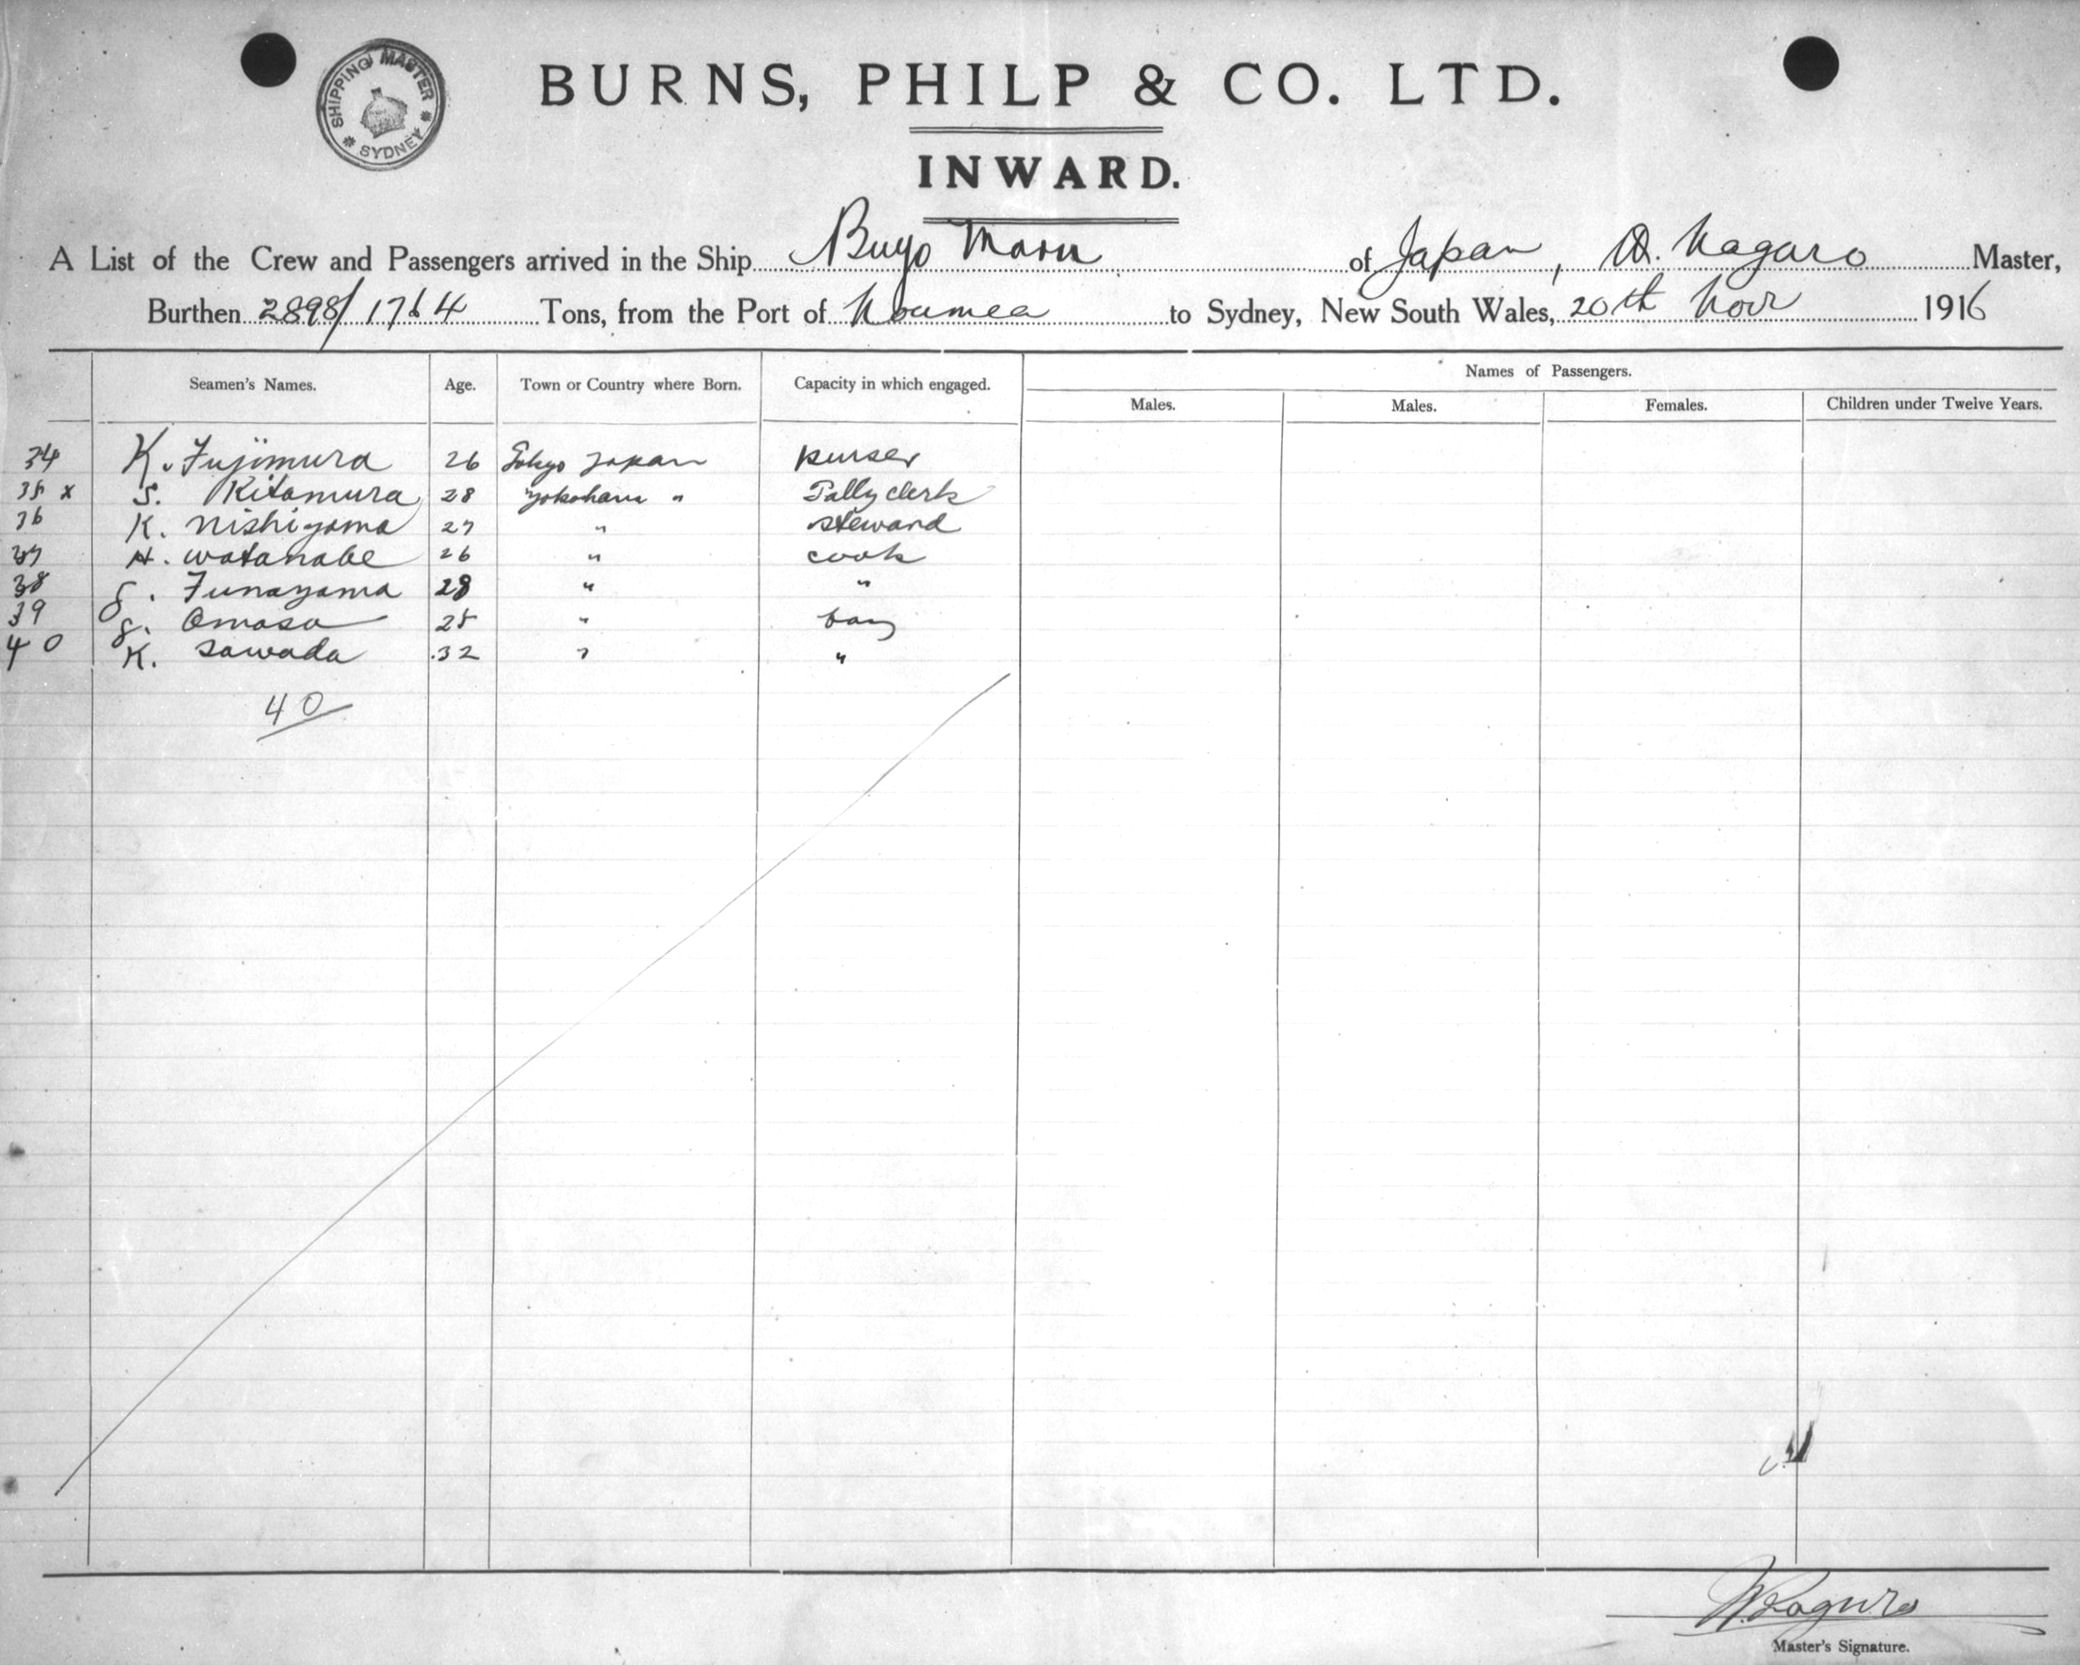 SHIPPING MASTER
SYDNEY
BURNS, PHILP & CO. LTD.
INWARD.
A List of the Crew and Passengers arrived in the Ship Buyo Maru of Japan, Nagaro Master,
Burthen 2898/1764 Tons, from the Port of Noumea to Sydney, New South Wales, 20th Novr 1916
Names of Passengers.
Seamen's Names. Age. Town or Country where Born. Capacity in which engaged. Males. Males. Females. Children under Twelve Years.
34 K. Fujimura 26 Tokyo Japan purser
35 x S. Kitamura 28 Yokohama " Tally clerk
36 K. Nishiyama 27 " steward
37 H. Watanabe 26 " cook
38 Funayama 28 " "
39 Omasa 25 " boy
40 K. Sawada 32 " "
40
Master's Signature.